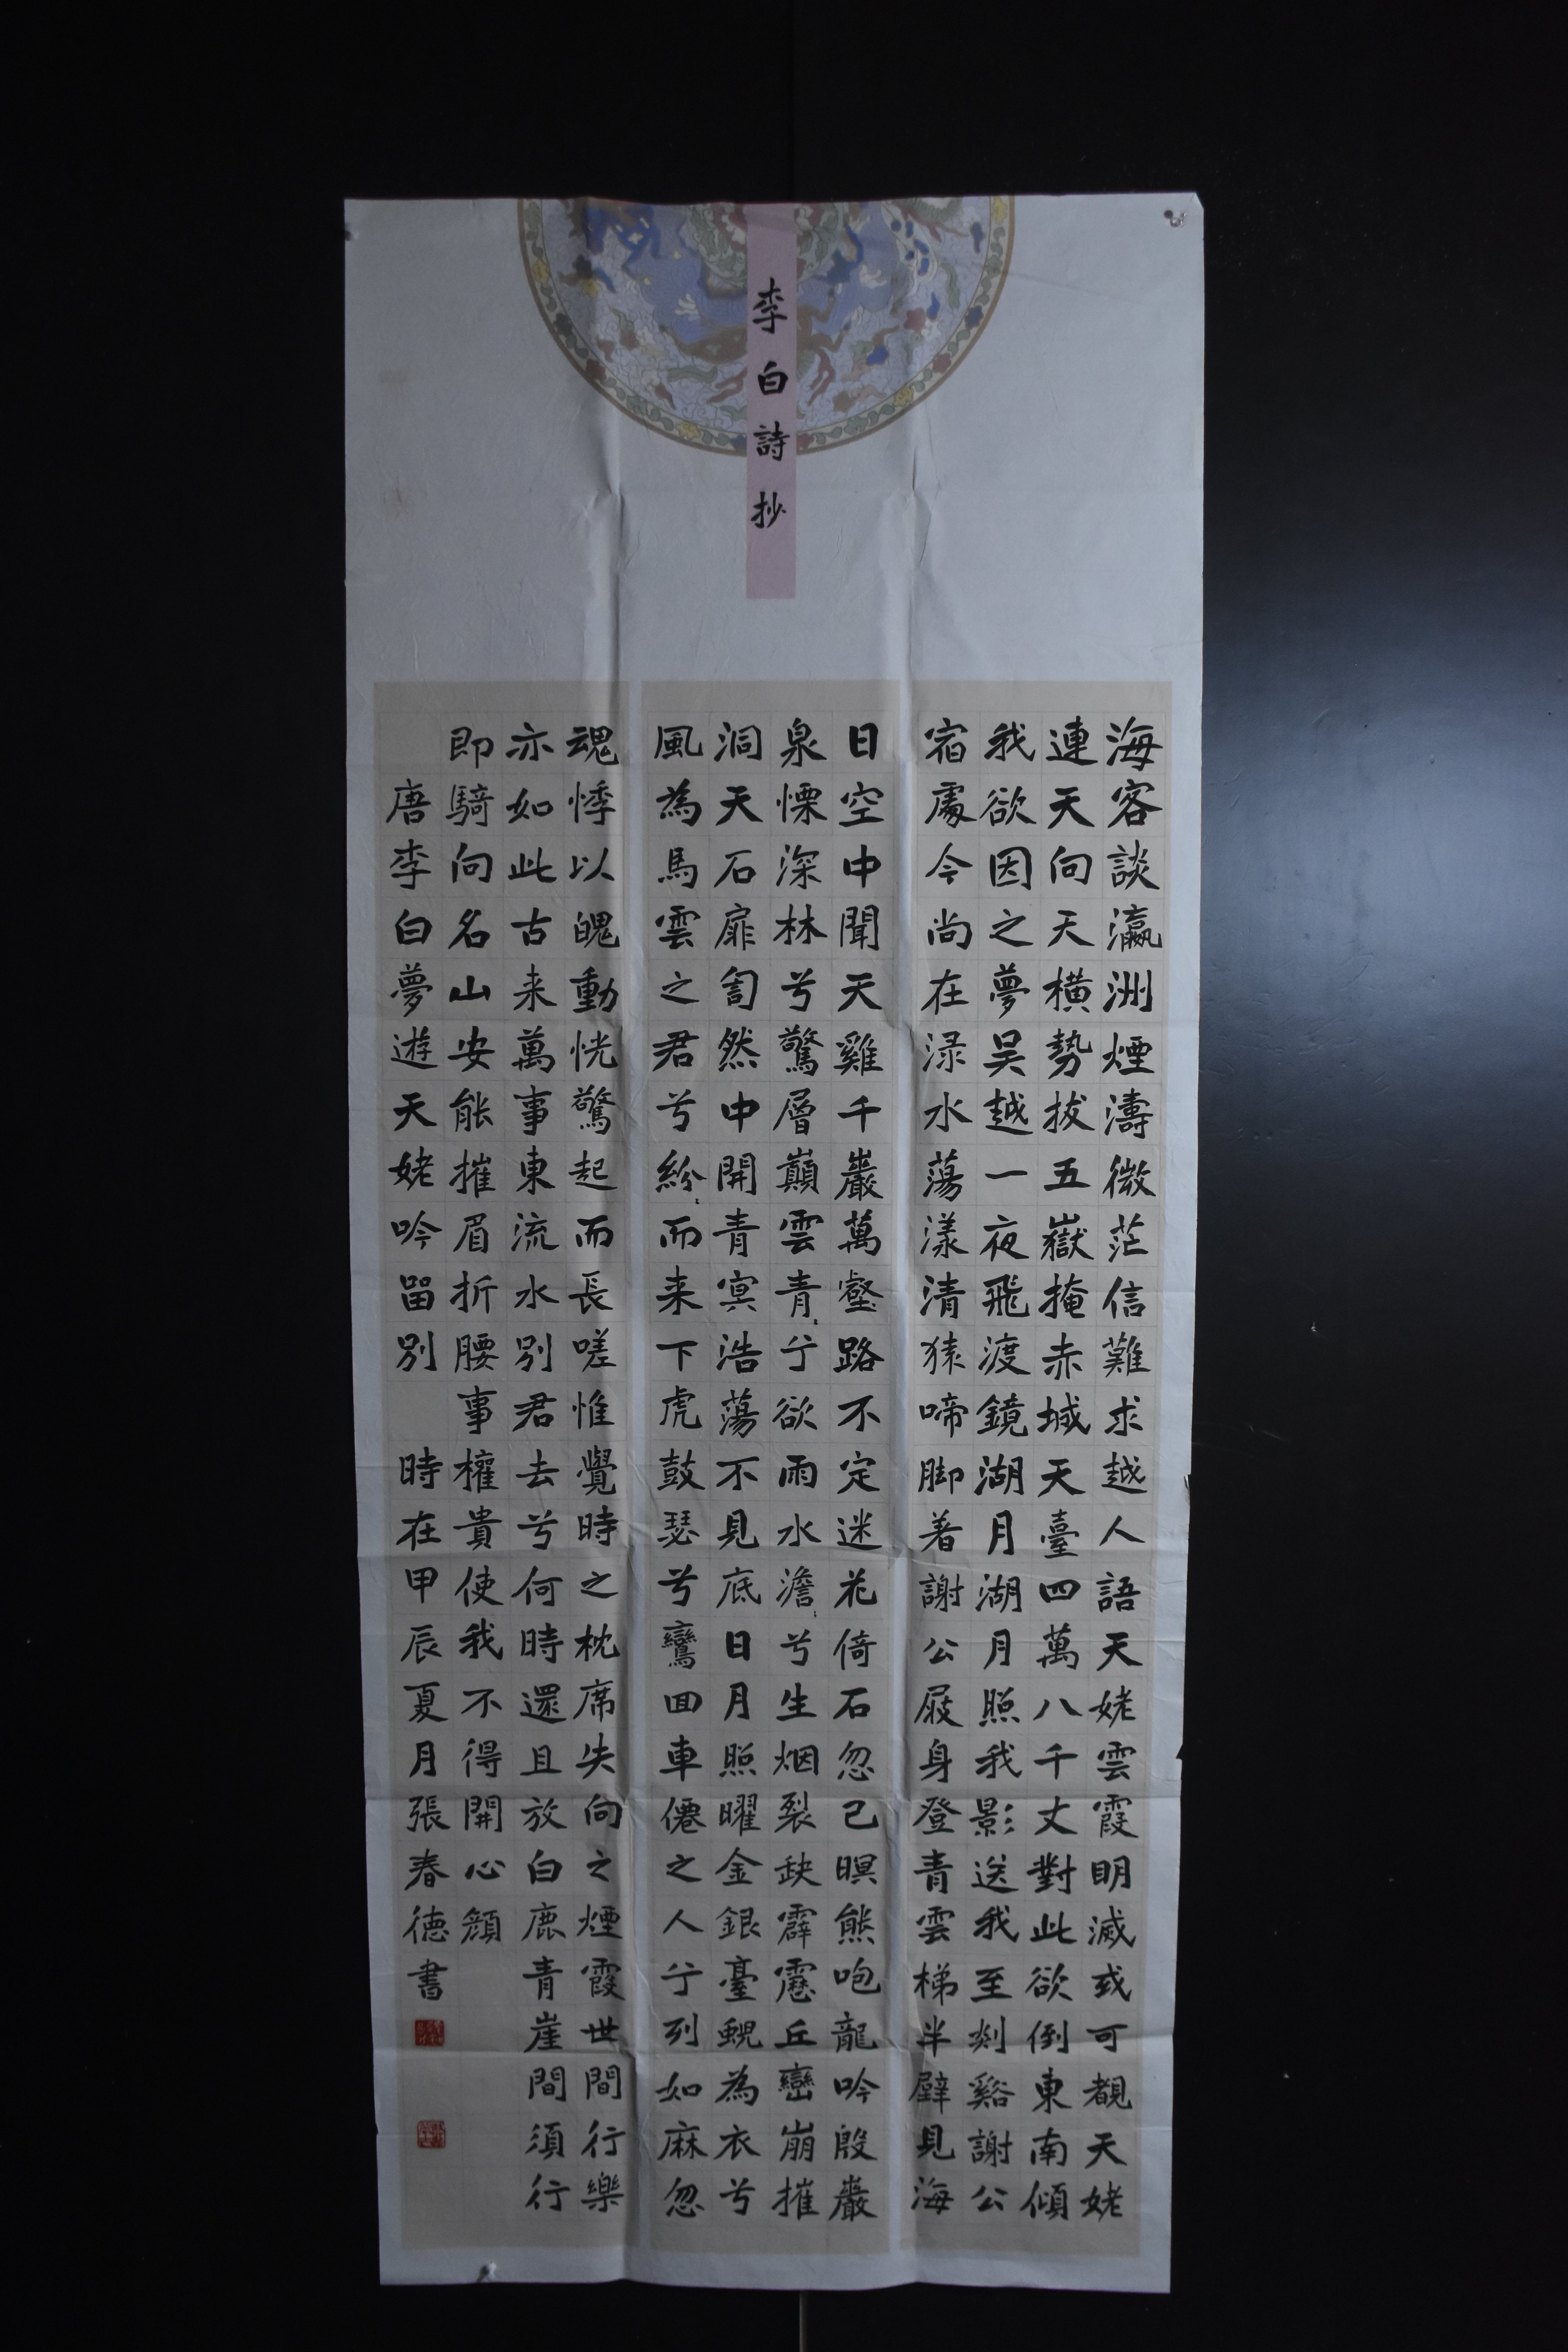 李白詩抄
海客談瀛洲煙濤微茫信難求越人語天姥雲霞明滅或可覩天姥
連天向天橫勢拔五嶽掩赤城天臺四萬八千丈對此欲倒東南傾
我欲因之夢吴越一夜飛渡鏡湖月湖月照我影送我至剡谿謝公
宿處今尚在渌水蕩漾清猿啼脚着謝公屐身登青雲梯半壁見海
日空中聞天雞千巖萬壑路不定迷花倚石忽已暝熊咆龍吟殷巖
泉慄深林兮驚層巔雲青〻兮欲雨水澹〻兮生烟裂缺霹靂丘巒崩摧
洞天石扉訇然中開青冥浩蕩不見底日月照曜金銀臺蜺為衣兮
風為馬雲之君兮紛〻而来下虎鼓瑟兮鸞回車僊之人兮列如麻忽
魂悸以魄動恍驚起而長嗟惟覺時之枕席失向之煙霞世間行樂
亦如此古来萬事東流水別君去兮何時還且放白鹿青崖間須行
即騎向名山安能摧眉折腰事權貴使我不得開心顏
唐李白夢遊天姥吟留別 時在甲辰夏月張春德書